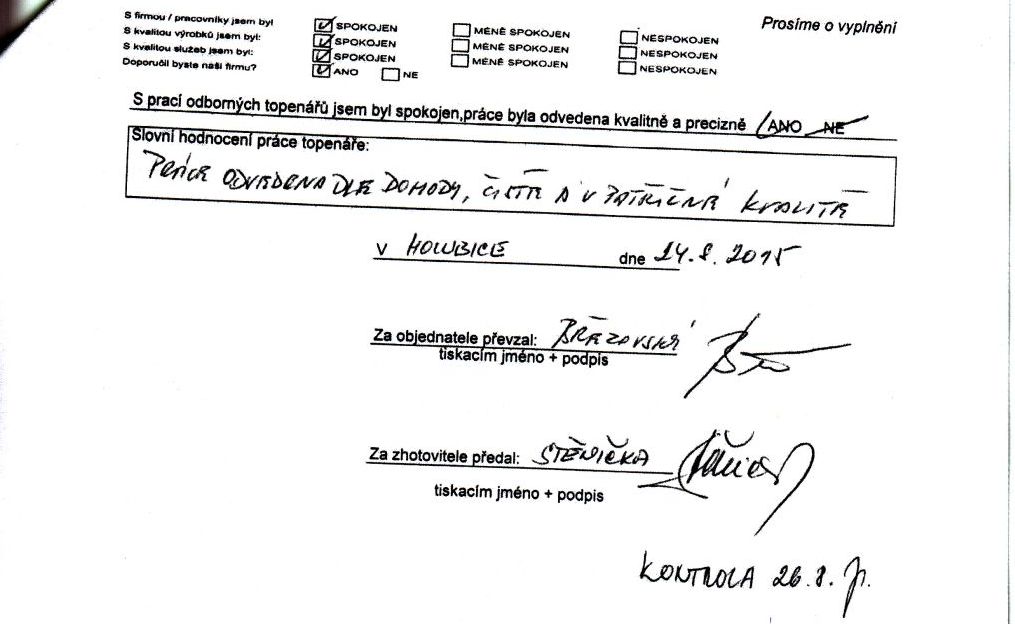 Prosíme o vyplnění
S firmou / pracovníky jsem byl SPOKOJEN MÉNĚ SPOKOJEN NESPOKOJEN
S kvalitou výrobků jsem byl: SPOKOJEN MÉNĚ SPOKOJEN NESPOKOJEN
S kvalitou služeb jsem byl: SPOKOJEN MÉNĚ SPOKOJEN NESPOKOJEN
Doporučil byste naši firmu? ANO NE
S prací odborných topenářů jsem byl spokojen,práce byla odvedena kvalitně a precizně ANO NE
Slovní hodnocení práce topenáře:
PRÁCE ODVEDENA DLE DOHODY, ČISTĚ A V PATŘIČNÉ KVALITĚ
v HOLUBICE dne 24.8. 2015
Za objednatele převzal: BŘEZOVSKÝ
tiskacím jméno + podpis
Za zhotovitele předal: STĚNIČKA
tiskacím jméno + podpis
KONTROLA 26.8.